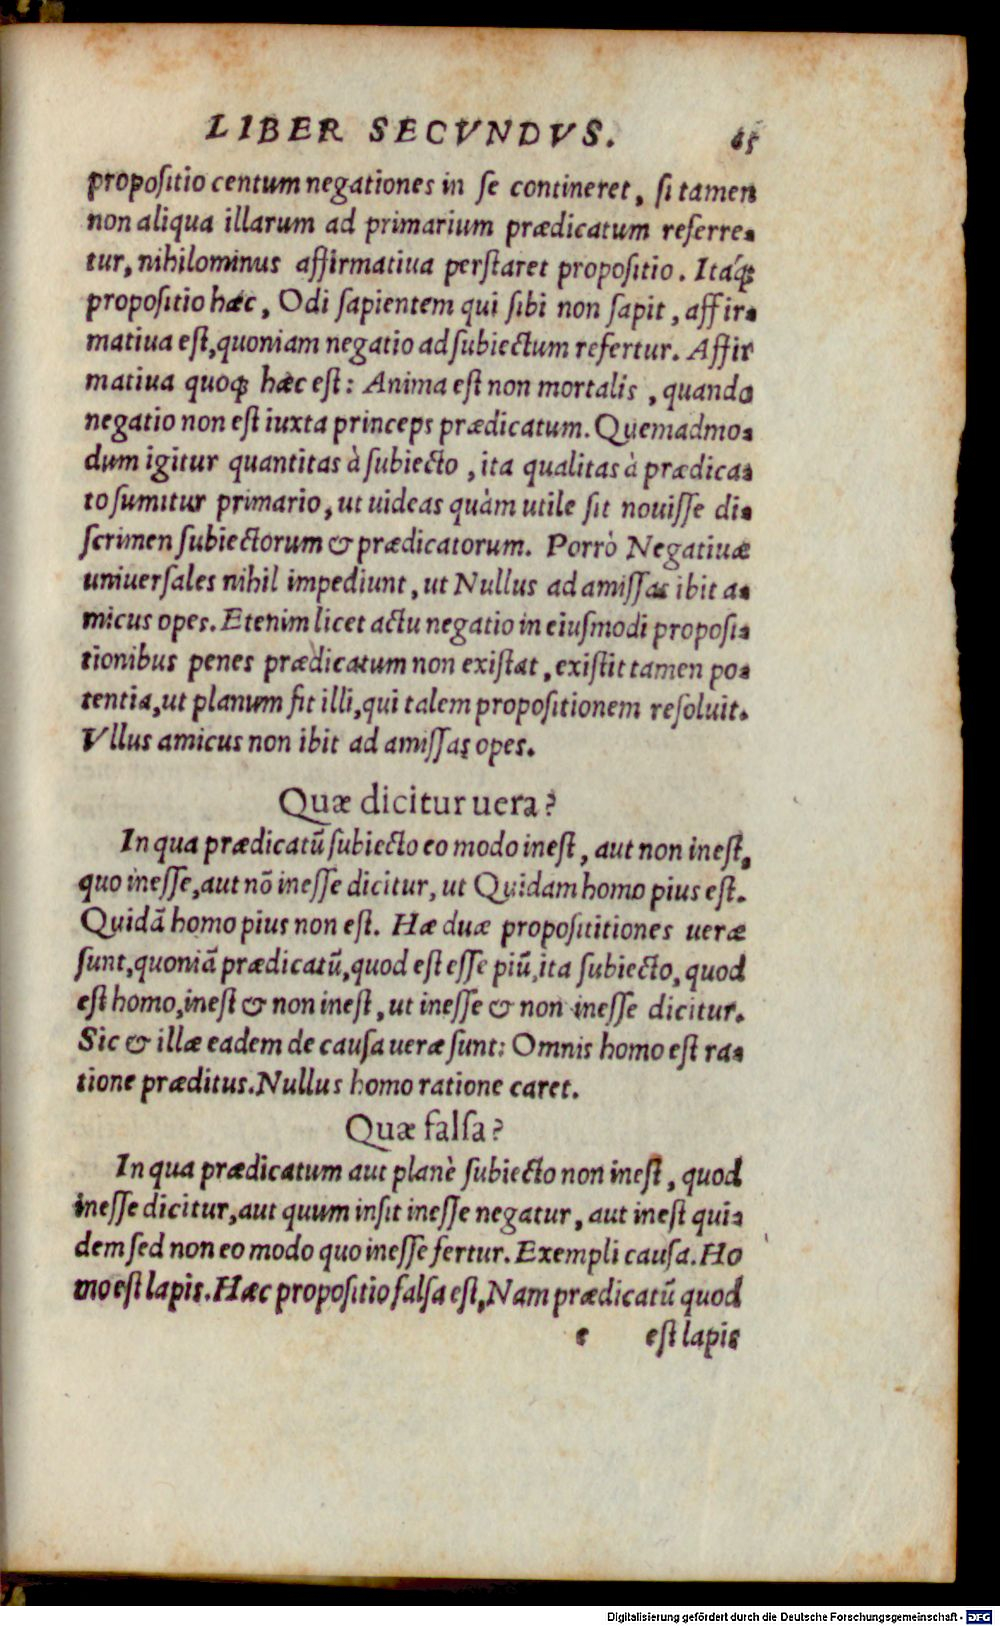 LIBER SECVNDVS. 65
propositio centum negationes in se contineret, si tamen
non aliqua illarum ad primarium prædicatum referre-
tur, nihilominus affirmatiua perstaret propositio. Itáq;
propositio hæc, Odi sapientem qui sibi non sapit, affir-
matiua est, quoniam negatio ad subiectum refertur. Affir
matiua quoq; hæc est: Anima est non mortalis, quando
negatio non est iuxta princeps prædicatum. Quemadmo-
dum igitur quantitas à subiecto, ita qualitas à prædica-
to sumitur primario, ut uideas quàm utile sit nouisse di-
scrimen subiectorum & prædicatorum. Porrò Negatiuæ
uniuersales nihil impediunt, ut Nullus ad amissas ibit a-
micus opes. Etenim licet actu negatio in eiusmodi proposi-
tionibus penes prædicatum non existat, existit tamen po-
tentia, ut planum fit illi, qui talem propositionem resoluit.
Vllus amicus non ibit ad amissas opes.
Quæ dicitur uera?
In qua prædicatũ subiecto eo modo inest, aut non inest,
quo inesse, aut nõ inesse dicitur, ut Quidam homo pius est.
Quidã homo pius non est. Hæ duæ propositiitiones ueræ
sunt, quoniã prædicatũ, quod est esse piũ, ita subiecto, quod
est homo, inest & non inest, ut inesse & non inesse dicitur.
Sic & illæ eadem de causa ueræ sunt: Omnis homo est ra-
tione præditus. Nullus homo ratione caret.
Quæ falsa?
In qua prædicatum aut planè subiecto non inest, quod
inesse dicitur, aut quum insit inesse negatur, aut inest qui-
dem sed non eo modo quo inesse fertur. Exempli causa. Ho
mo est lapis. Hæc propositio falsa est, Nam prædicatũ quod
e est lapis
Digitalisierung gefördert durch die Deutsche Forschungsgemeinschaft - DFG